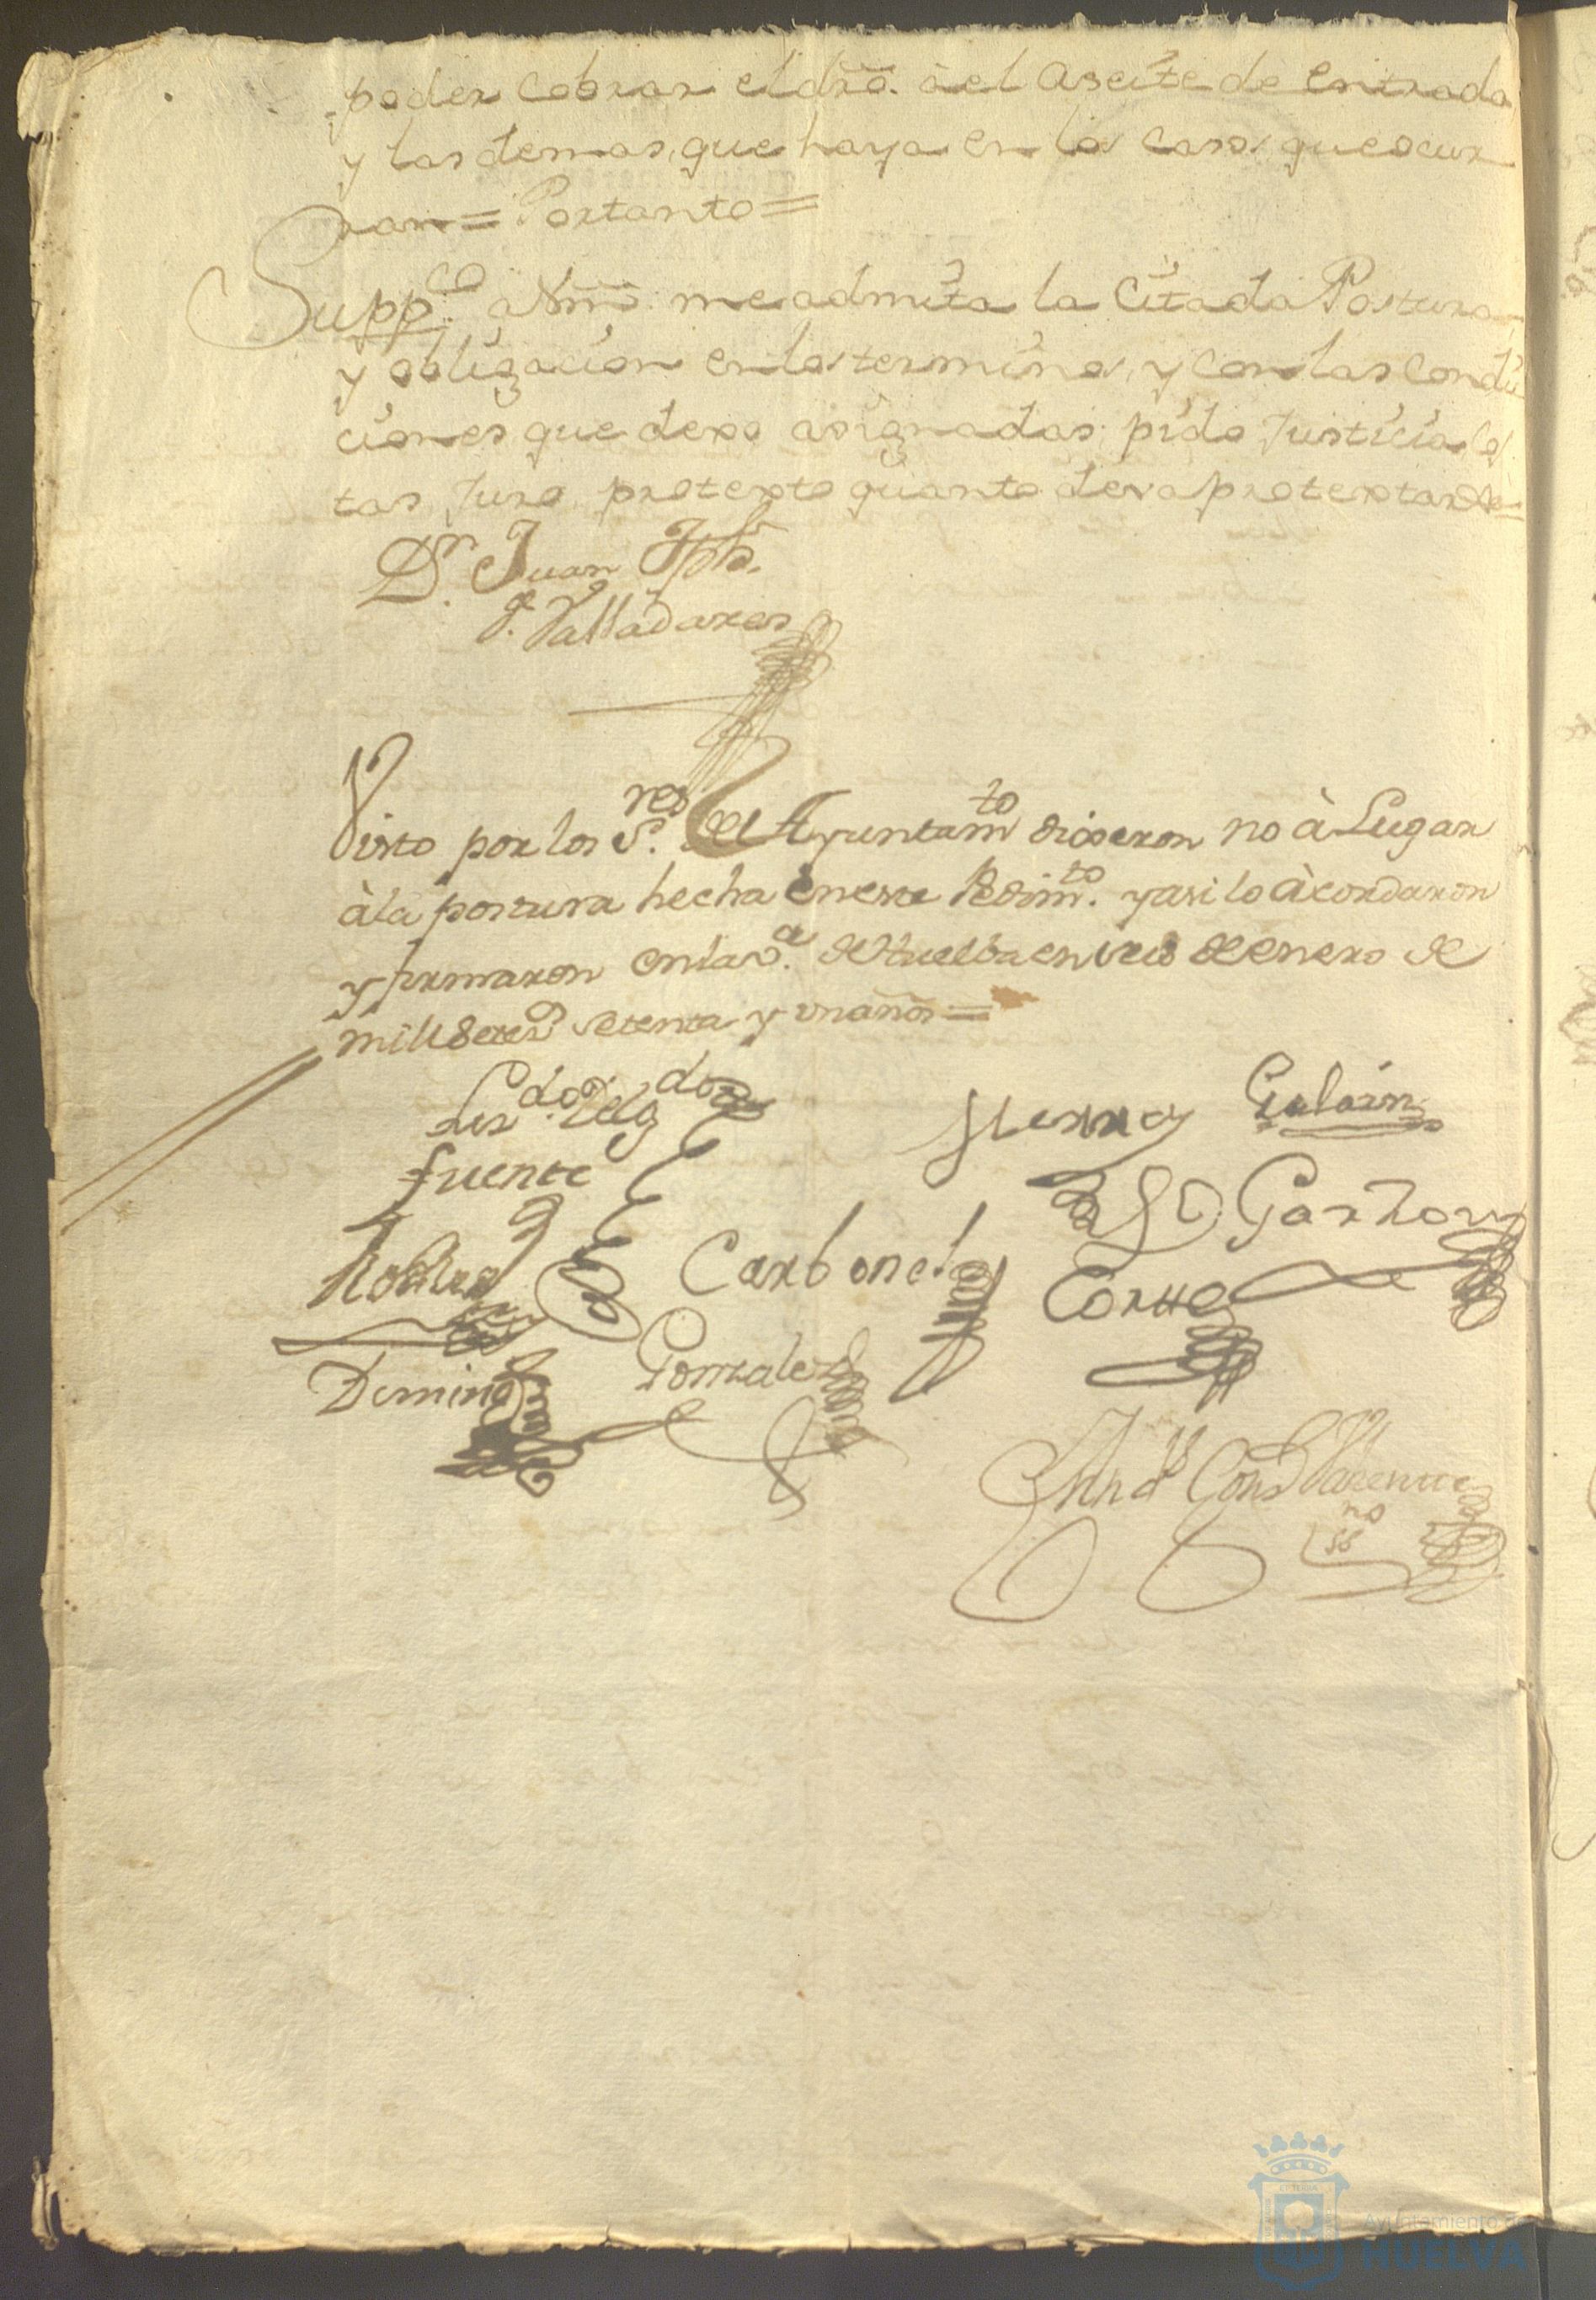 poder cobrar el dr̃o. àel Aseite de entrada
y las demas, que haya en lo caso, que ocur
ran = Portanto =
Suppco. aVm̃s. me admita la Citada Postura
y obligacion en los termino, y con las Condi
ciones que dexo asignadas; pido Justicia, Cos
tas, Juro, protexto quanto deva protextar &a=
Dn. Juan Jph.
F. Valladares
Visto por los Sres. del Ayuntamto dixeron no à Lugar
àla postura hecha en este Pedimto. y asi lo àcordaron
y firmaron en la va. de Huelba en seis de enero de
mill Setesos setenta y un años =
Lizdo. Delgdo
Monrroy
Galvin
fuente
Garzon
Robles
Carbonel
Corzo
Domingz
Gonzalez